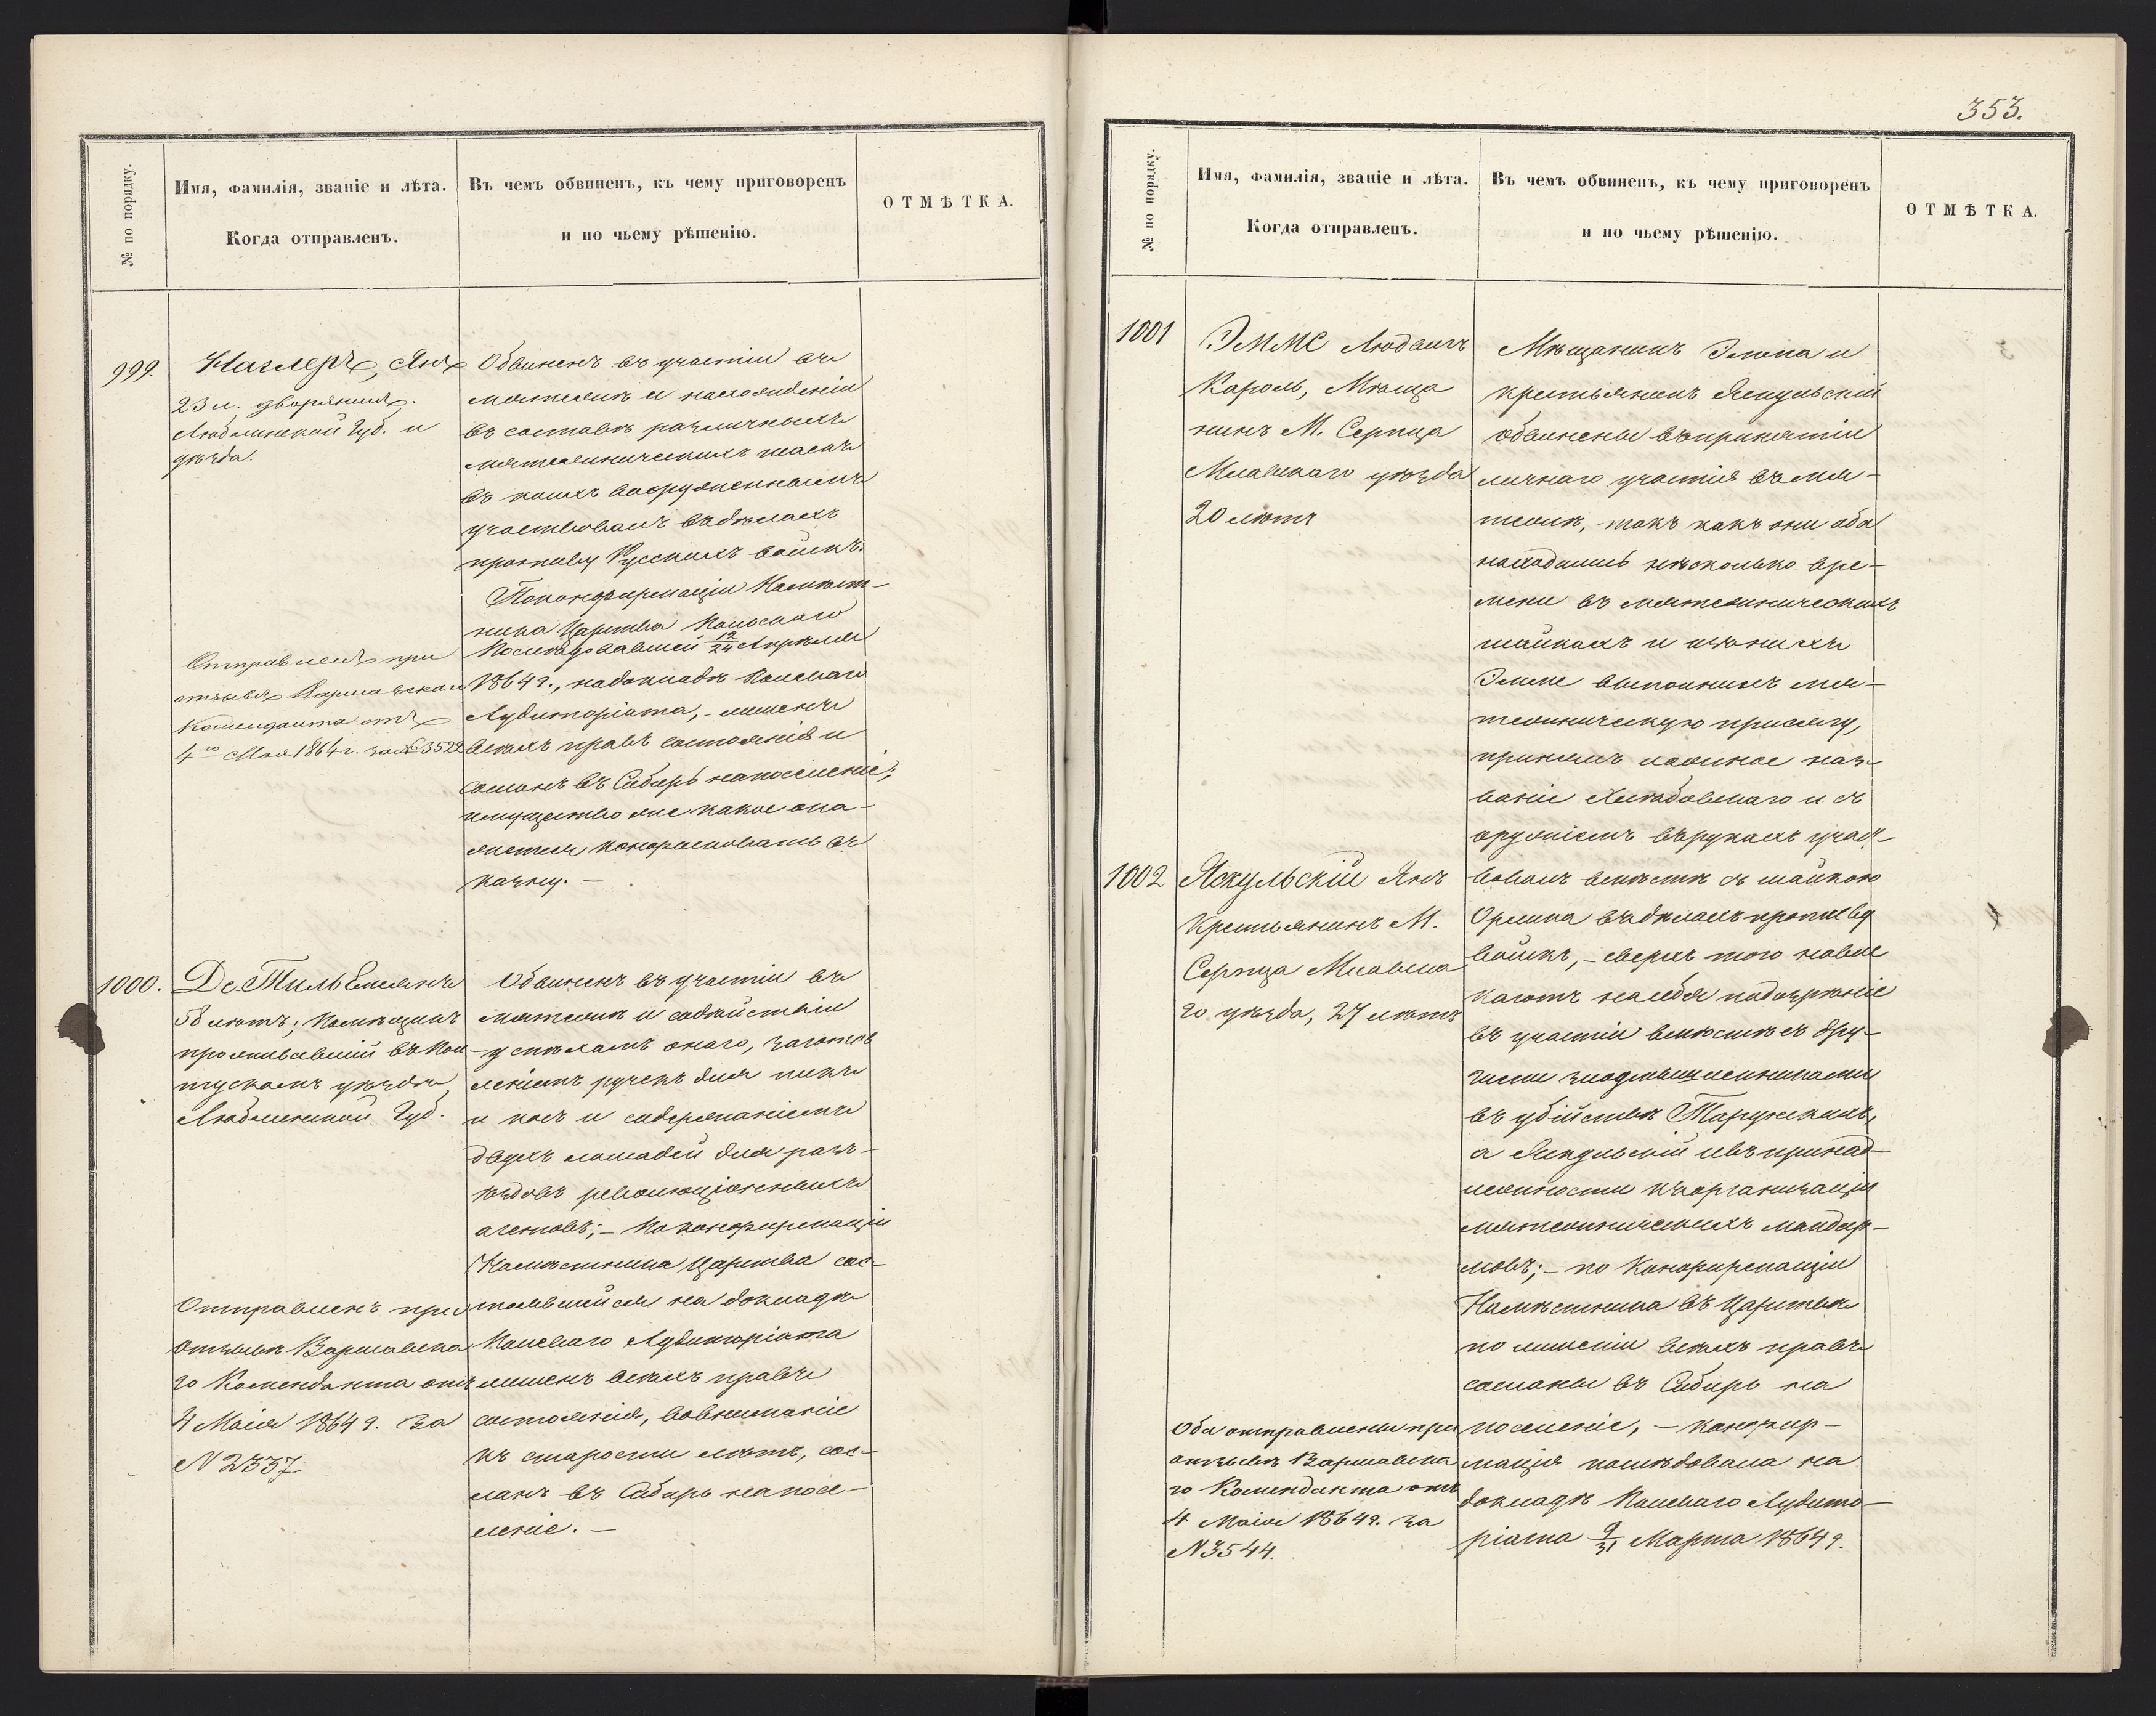 № по порядку.
Имя, фамилія, званіе и лѣта.
Когда отправленъ.
Въ чемъ обвиненъ, къ чему приговоренъ
и по чьему рѣшенію.
ОТМѢТКА.
999.
Наглеръ, Янъ
23 л. дворянинъ.
Люблинской Губ. и
уѣзда.
Отправленъ при
отзывѣ Варшавскаго
Коменданта отъ
4го Мая 1864 г. за № 3522
Обвиненъ въ участіи въ
мятежѣ и нахожденіи
въ составѣ различныхъ
мятежническихъ шаекъ
въ коихъ вооруженнымъ
участвовалъ въ дѣлахъ
противу Русскихъ войскъ.
По конфирмаціи Намѣст-
ника Царства Польскаго
послѣдовавшей 12/24 Апрѣля
1864 г., на докладѣ Полеваго
Аудиторіата, - лишенъ
всѣхъ правъ состоянія и
сосланъ въ Сибирь на поселеніе;
имущество же какое ока-
жется конфисковать въ
казну. —
1000.
Де Тиль Емеліянъ
58 лѣтъ; помѣщикъ
проживавшій въ
уѣздѣ,
Люблинской Губ.
Отправленъ при
отзывѣ Варшавска
го Коменданта отъ
4 Маія 1864 г. за
N 2337.
Обвиненъ въ участіи въ
мятежѣ и содѣйствіи
успѣхамъ онаго, заготов
леніемъ ручекъ для пикъ
и косъ и содержаніемъ
двухъ лошадей для разъ-
ѣздовъ революціонныхъ
агентовъ; — по конфирмаціи
Намѣстника Царства сос-
тоявшейся на докладѣ
Полеваго Аудиторіата
лишенъ всѣхъ правъ
состоянія, во вниманіе
къ старости лѣтъ, сос-
ланъ въ Сибирь на посе-
леніе. —
353.
№ по порядку.
Имя, фамилія, званіе и лѣта.
Когда отправленъ.
Въ чемъ обвиненъ, къ чему приговоренъ
и по чьему рѣшенію.
ОТМѢТКА.
1001
Эммс Людвигъ
Кароль, Мѣща
нинъ М. Серпца
Млавскаго уѣзда
20 лѣтъ
Мѣщанинъ и
крестьянинъ Яскульскій
обвинены въ принятіи
личнаго участія въ мя-
тежѣ, такъ какъ они оба
находились нѣсколько вре-
мени въ мятежническихъ
шайкахъ и изъ нихъ
выполнилъ мя-
тежническую присягу,
принялъ ложное наз-
ваніе и съ
оружіемъ въ рукахъ участ-
вовалъ вмѣстѣ съ шайкою
Орлика въ дѣлахъ противъ
войскъ, — сверхъ того навле
каютъ на себя подозрѣніе
въ участіи вмѣстѣ съ дру-
гими злоумышленниками
въ убійствѣ
а Яскульскій и въ принад-
лежности къ организаціи
мятежническихъ жандар-
мовъ; — по Конфирмаціи
Намѣстника въ Царствѣ
по лишеніи всѣхъ правъ
сосланы въ Сибирь на
поселеніе, — конфир-
мація послѣдовала на
докладѣ Полеваго Аудито-
ріата 9/31 Марта 1864 г.
1002
Яскульскій Янъ
Крестьянинъ М.
Серпца Млавска
го уѣзда, 27 лѣтъ
Оба отправлены при
отзывѣ Варшавска
го Коменданта отъ
4 Маія 1864 г. за
N 3544.